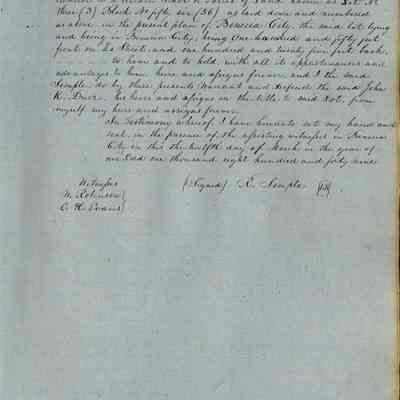 three (3) Block No fifty six (56) as laid down and numbered
as above in the present plan of Benicia City, the said lot lying
and being in Benicia City, being One hundred and fifty feet
front on Street, and one hundred and twenty five feet back.
to have and to hold, with all it appertainances and
advantages to him heirs and assigns forever and I the said
Semple do by these presents Warrant and defend the said John
K. his heirs and assigns in the title to said Lot, from
myself my heirs and assigns forever
In testimony whereof I have hereunto set my hand and
seal, in the presence of the assisting witnesses in Benicia
City on this the twelfth day of March in the year of
our Lord one thousand eight hundred and forty nine
Witness
(Signed) R. Semple
W. Robinson
O. H. Evans